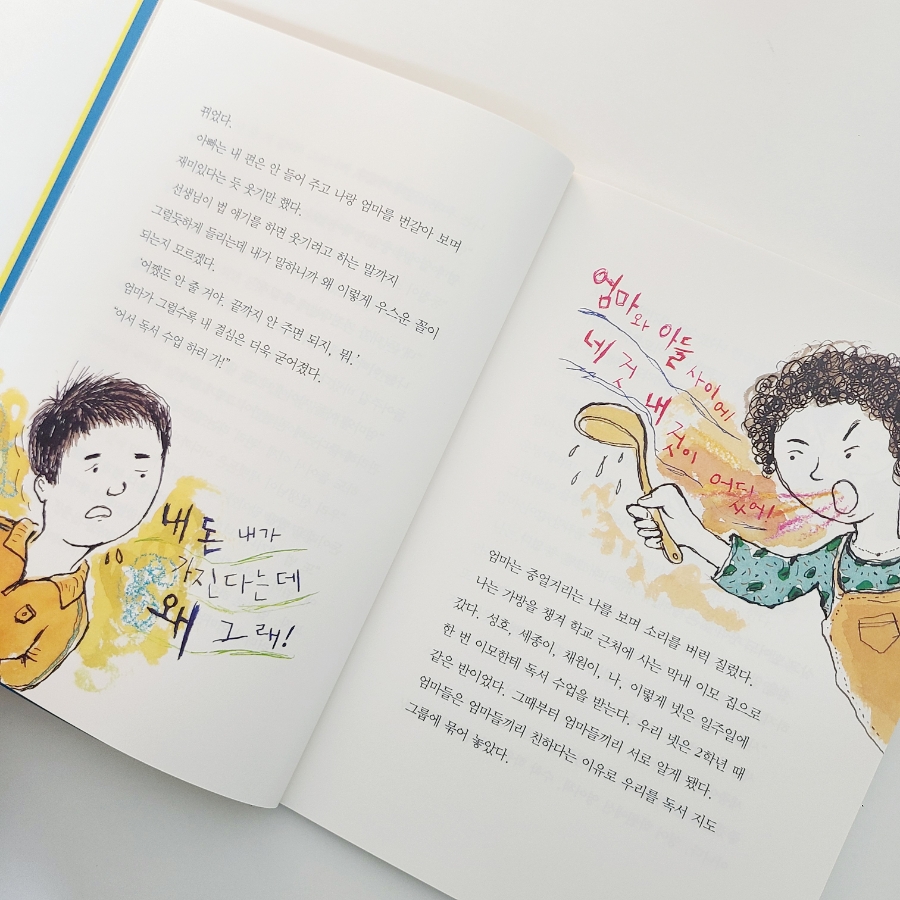 뀌었다.
아빠는 내 편은 안 들어 주고 나랑 엄마를 번갈아 보며
재미있다는 듯 웃기만 했다.
선생님이 법 얘기를 하면 웃기려고 하는 말까지
그럴듯하게 들리는데 내가 말하니까 왜 이렇게 우스운 꼴이
되는지 모르겠다.
'어쨌든 안 줄 거야. 끝까지 안 주면 되지, 뭐.'
엄마가 그럴수록 내 결심은 더욱 굳어졌다.
"어서 독서 수업 하러 가!"
내 돈 내가
가진다는데
왜 그래!
엄마와 아들 사이에
네 것 내 것이 어딨어!
엄마는 중얼거리는 나를 보며 소리를 버럭 질렀다.
나는 가방을 챙겨 학교 근처에 사는 막내 이모 집으로
갔다. 성호, 세종이, 채원이, 나, 이렇게 넷은 일주일에
한 번 이모한테 독서 수업을 받는다. 우리 넷은 2학년 때
같은 반이었다. 그때부터 엄마들끼리 서로 알게 됐다.
엄마들은 엄마들끼리 친하다는 이유로 우리를 독서 지도
그룹에 묶어 놓았다.